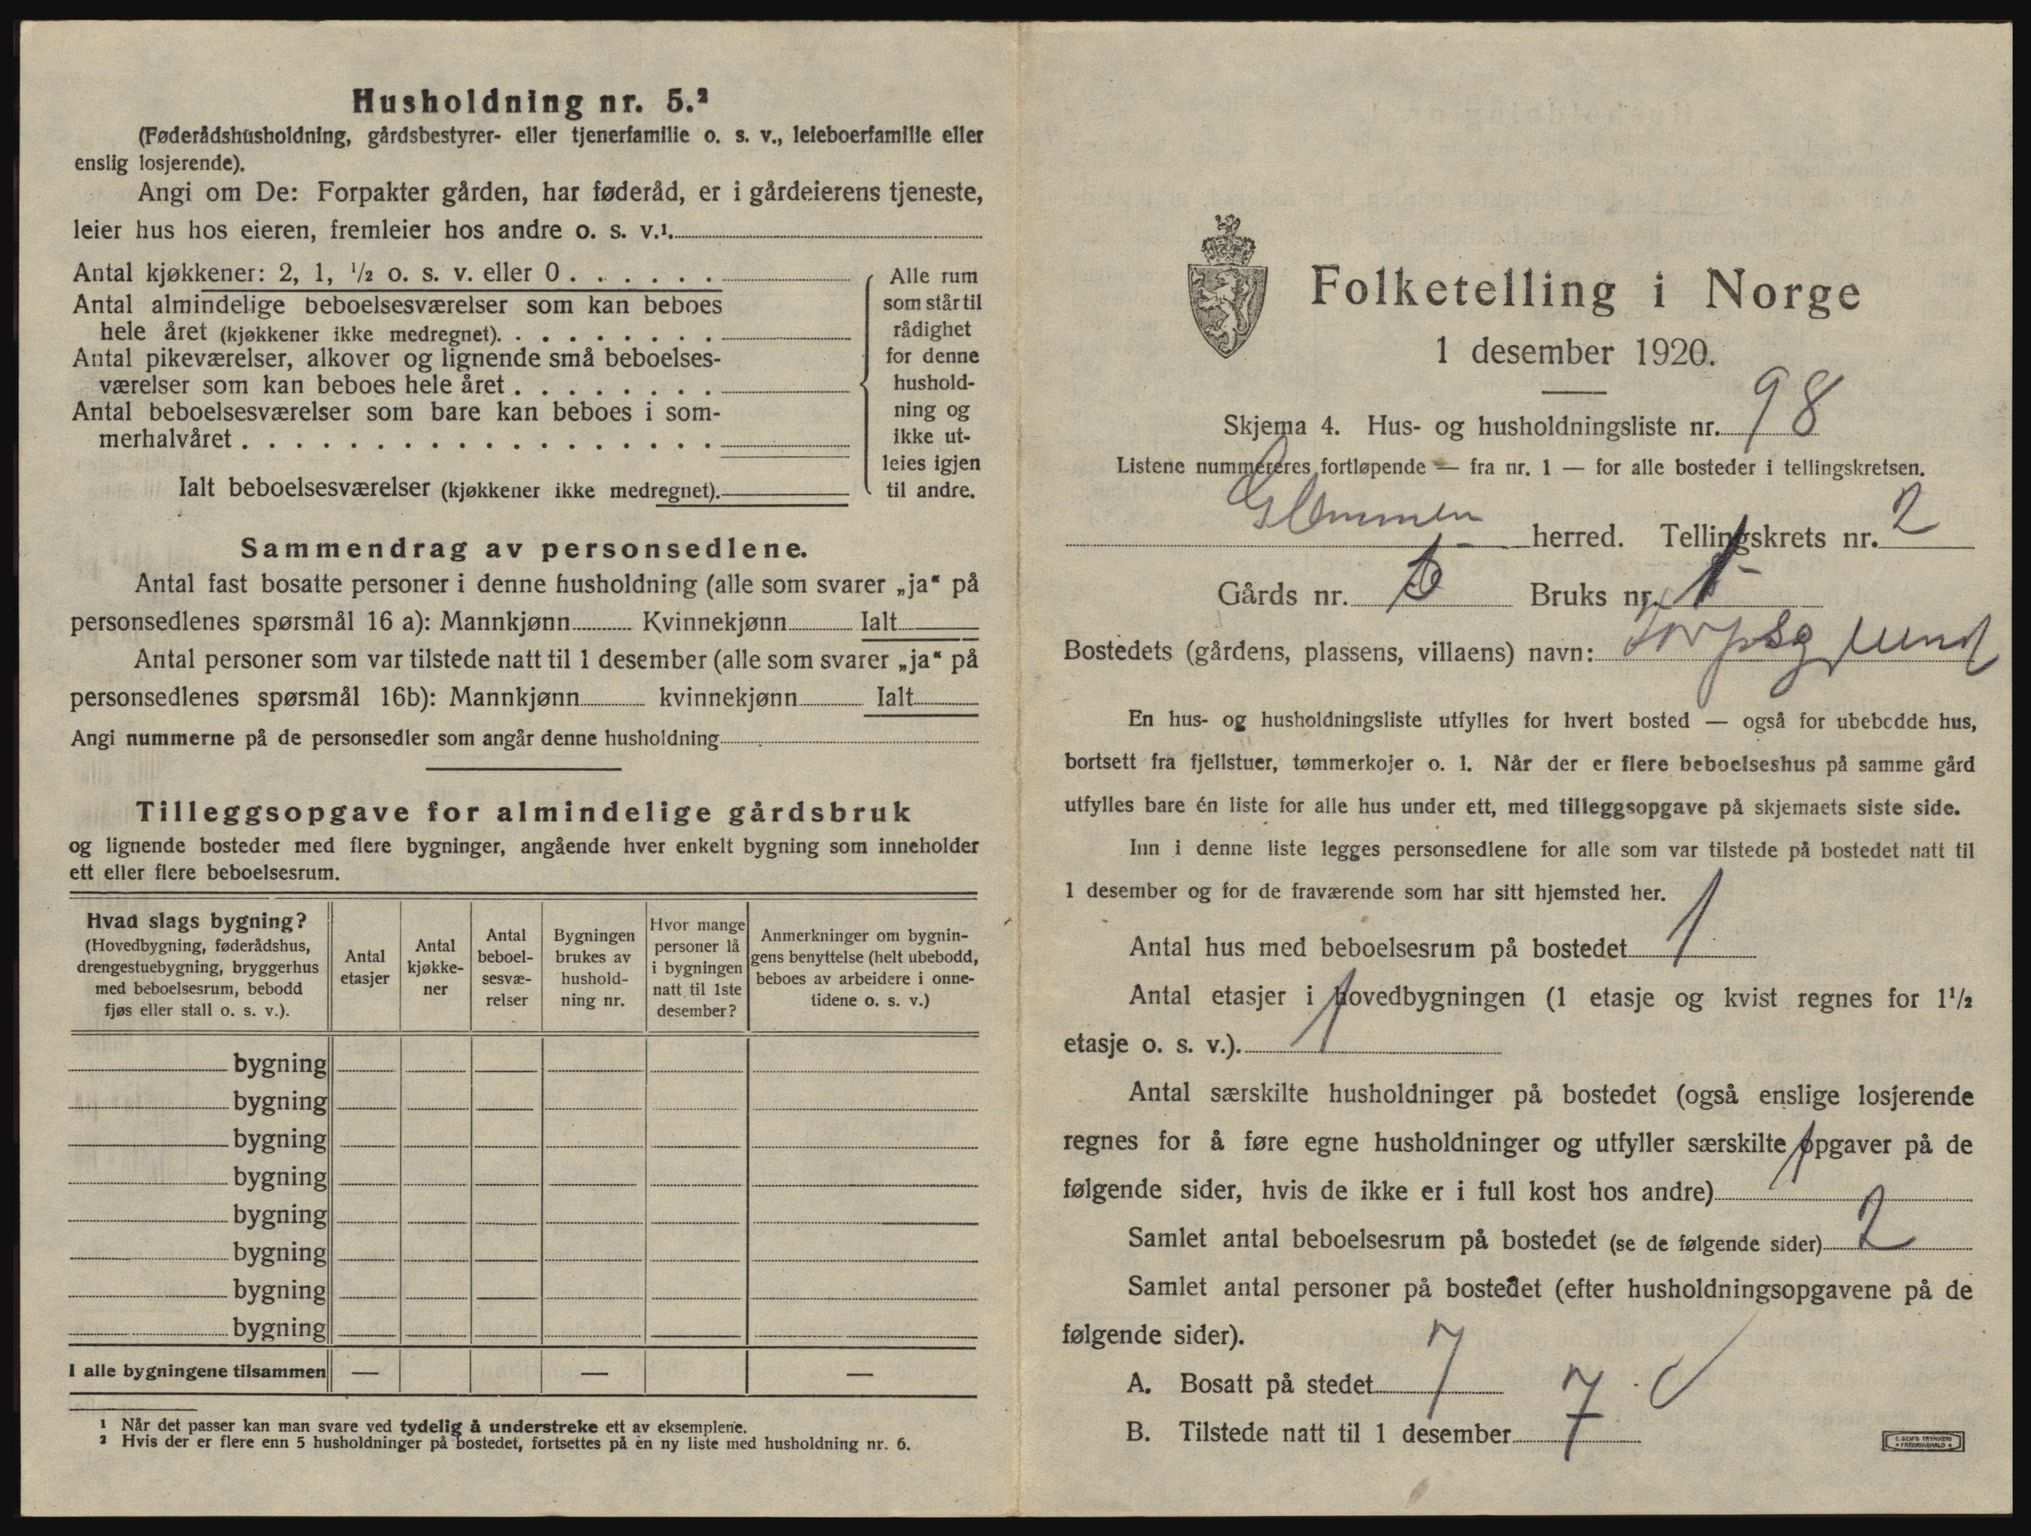 Husholdning nr. 5.²
(Føderådshusholdning, gårdsbestyrer- eller tjenerfamilie o. s. v., leieboerfamilie eller
enslig losjerende).
Angi om De: Forpakter gården, har føderåd, er i gårdeierens tjeneste,
leier hus hos eieren, fremleier hos andre o. s. v.¹.
Antal kjøkkener: 2, 1, ½ o. s. v. eller 0 . . . . . .
Antal almindelige beboelsesværelser som kan beboes
hele året (kjøkkener ikke medregnet). . . . . . . . .
Antal pikeværelser, alkover og lignende små beboelses-
værelser som kan beboes hele året . . . . . . . .
Antal beboelsesværelser som bare kan beboes i som-
merhalvåret . . . . . . . . . . . . . . . . . .
Ialt beboelsesværelser (kjøkkener ikke medregnet).
Alle rum
som står til
rådighet
for denne
hushold-
ning og
ikke ut-
leies igjen
til andre.
Sammendrag av personsedlene.
Antal fast bosatte personer i denne husholdning (alle som svarer „ja“ på
personsedlenes spørsmål 16 a): Mannkjønn Kvinnekjønn Ialt
Antal personer som var tilstede natt til 1 desember (alle som svarer „ja“ på
personsedlenes spørsmål 16b): Mannkjønn kvinnekjønn Ialt
Angi nummerne på de personsedler som angår denne husholdning
Tilleggsopgave for almindelige gårdsbruk
og lignende bosteder med flere bygninger, angående hver enkelt bygning som inneholder
ett eller flere beboelsesrum.
Hvad slags bygning?
(Hovedbygning, føderådshus,
drengestuebygning, bryggerhus
med beboelsesrum, bebodd
fjøs eller stall o. s. v.).
Antal
etasjer
Antal
kjøkke-
ner
Antal
beboel-
sesvæ-
relser
Bygningen
brukes av
hushold-
ning nr.
Hvor mange
personer lå
i bygningen
natt til 1ste
desember?
Anmerkninger om bygnin-
gens benyttelse (helt ubebodd,
beboes av arbeidere i onne-
tidene o. s. v.)
bygning
bygning
bygning
bygning
bygning
bygning
bygning
bygning
I alle bygningene tilsammen — — —
¹ Når det passer kan man svare ved tydelig å understreke ett av eksemplene.
² Hvis der er flere enn 5 husholdninger på bostedet, fortsettes på en ny liste med husholdning nr. 6.
Folketelling i Norge
1 desember 1920.
Skjema 4. Hus- og husholdningsliste nr. 98
Listene nummereres fortløpende — fra nr. 1 — for alle bosteder i tellingskretsen.
Glemmen herred. Tellingskrets nr. 2
Gårds nr. Bruks nr. 1
Bostedets (gårdens, plassens, villaens) navn: Torpsgrund
En hus- og husholdningsliste utfylles for hvert bosted — også for ubebodde hus,
bortsett fra fjellstuer, tømmerkojer o. l. Når der er flere beboelseshus på samme gård
utfylles bare én liste for alle hus under ett, med tilleggsopgave på skjemaets siste side.
Inn i denne liste legges personsedlene for alle som var tilstede på bostedet natt til
1 desember og for de fraværende som har sitt hjemsted her.
Antal hus med beboelsesrum på bostedet 1
Antal etasjer i hovedbygningen (1 etasje og kvist regnes for 1½
etasje o. s. v.). 1
Antal særskilte husholdninger på bostedet (også enslige losjerende
regnes for å føre egne husholdninger og utfyller særskilte opgaver på de
følgende sider, hvis de ikke er i full kost hos andre) 1
Samlet antal beboelsesrum på bostedet (se de følgende sider) 2
Samlet antal personer på bostedet (efter husholdningsopgavene på de
følgende sider).
A. Bosatt på stedet 7
B. Tilstede natt til 1 desember 7